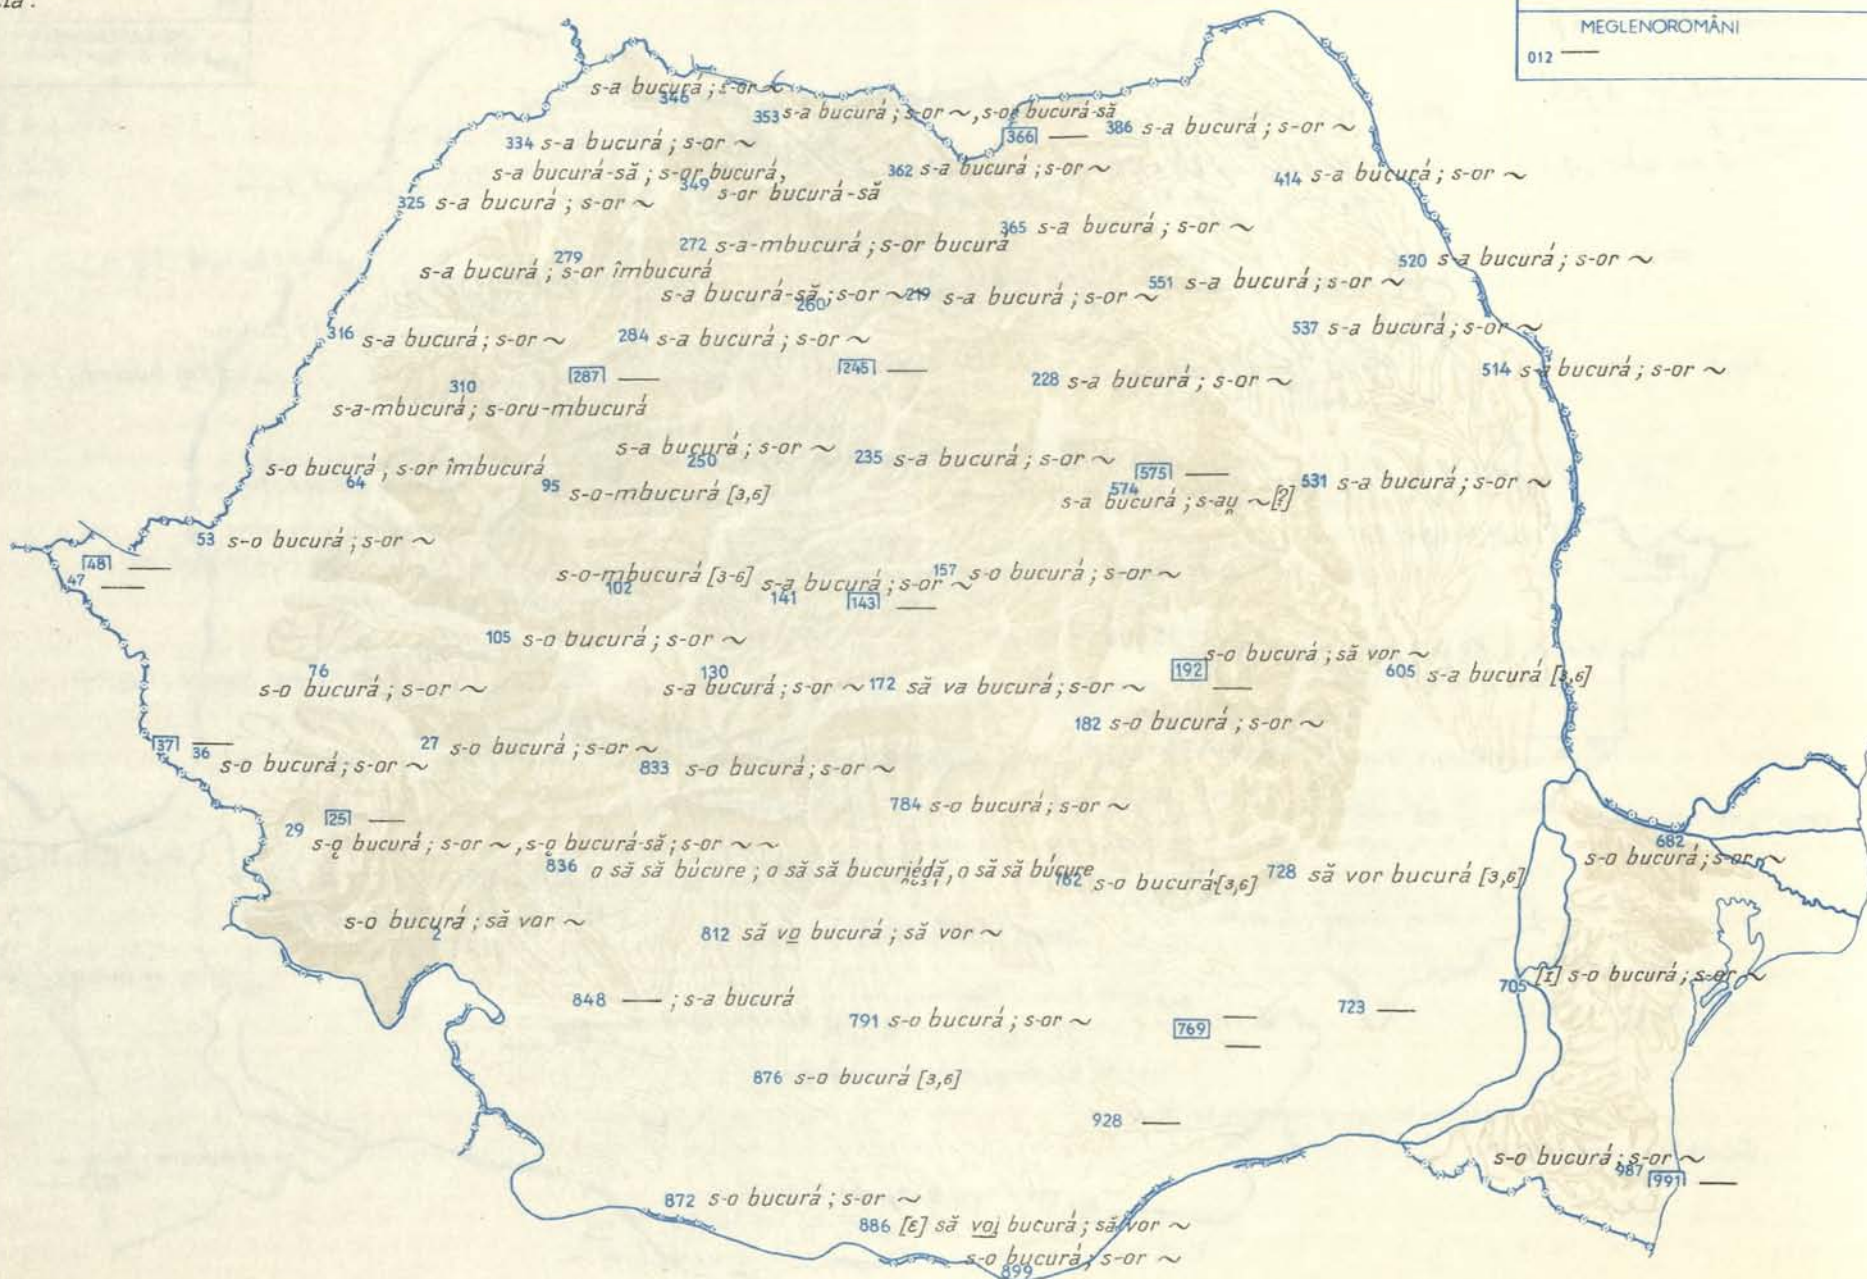 MEGLENOROMÂNI
012 —
s-a bucurá ; s-or ~
346
353 s-a bucurá ; s-or ~, s-or bucurá-să
366 —
386 s-a bucurá ; s-or ~
334 s-a bucurá ; s-or ~
s-a bucurá-să ; s-or bucurá,
349 s-or bucurá-să
362 s-a bucurá ; s-or ~
414 s-a bucurá ; s-or ~
325 s-a bucurá ; s-or ~
365 s-a bucurá ; s-or ~
272 s-a-mbucurá ; s-or bucurá
279
s-a bucurá ; s-or îmbucurá
520 s-a bucurá ; s-or ~
s-a bucurá-să ; s-or ~
260
219 s-a bucurá ; s-or ~
551 s-a bucurá ; s-or ~
316 s-a bucurá ; s-or ~
284 s-a bucurá ; s-or ~
537 s-a bucurá ; s-or ~
287 —
245 —
228 s-a bucurá ; s-or ~
514 s-a bucurá ; s-or ~
310
s-a-mbucurá ; s-oru-mbucurá
s-a bucurá ; s-or ~
250
235 s-a bucurá ; s-or ~
s-o bucurá , s-or îmbucurá
64
95 s-o-mbucurá [3,6]
575 —
574
s-a bucurá ; s-au̯ ~ [?]
531 s-a bucurá ; s-or ~
53 s-o bucurá ; s-or ~
48 —
47 —
s-o-mbucurá [3-6]
102
s-a bucurá ; s-or ~
141
143 —
157 s-o bucurá ; s-or ~
105 s-o bucurá ; s-or ~
76
s-o bucurá ; s-or ~
130
s-a bucurá ; s-or ~
172 să va bucurá ; s-or ~
s-o bucurá ; să vor ~
192 —
605 s-a bucurá [3,6]
182 s-o bucurá ; s-or ~
37 —
36
s-o bucurá ; s-or ~
27 s-o bucurá ; s-or ~
833 s-o bucurá ; s-or ~
784 s-o bucurá ; s-or ~
25 —
29 s-o̜ bucurá ; s-or ~, s-o̜ bucurá-să ; s-or ~ ~
836 o să să búcure ; o să să , o să să búcure
762 s-o bucurá [3,6]
728 să vor bucurá [3,6]
682
s-o bucurá ; s-or ~
s-o bucurá ; să vor ~
2
812 să vo bucurá ; să vor ~
848 — ; s-a bucurá
705 [I] s-o bucurá ; s-or ~
791 s-o bucurá ; s-or ~
769 —
—
723 —
876 s-o bucurá [3,6]
928 —
s-o bucurá ; s-or ~
987
991 —
872 s-o bucurá ; s-or ~
886 [ε] să voi̯ bucurá ; să vor ~
s-o bucurá ; s-or ~
899